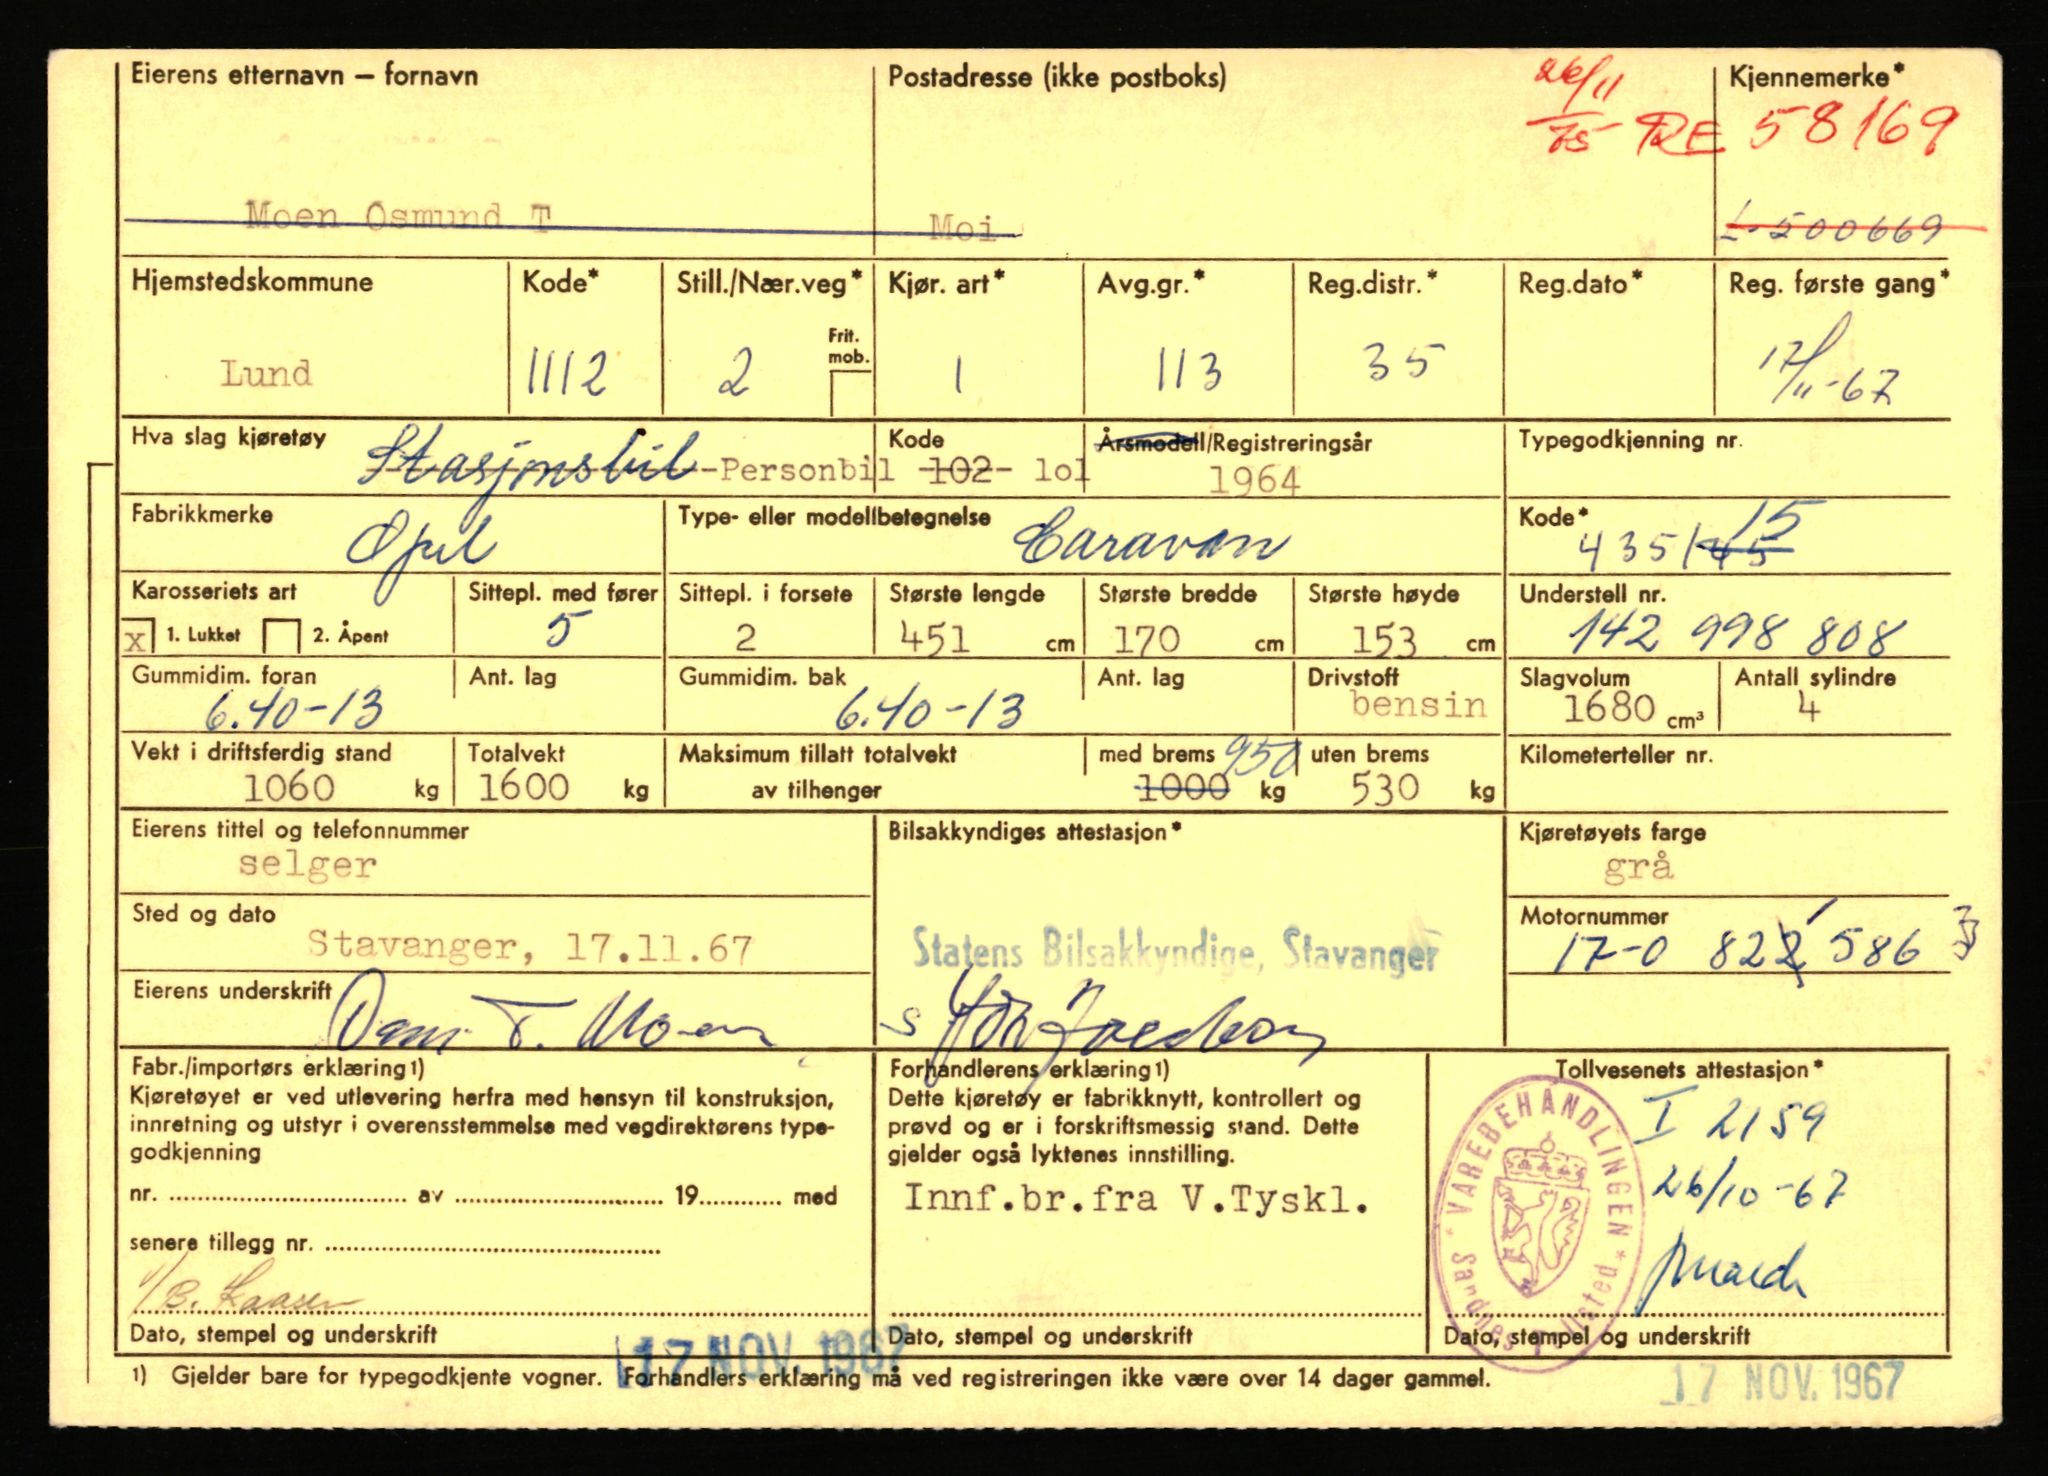 Eierens etternavn – fornavn
Moen Osmund T
Postadresse (ikke postboks)
Moi
26/11
75
Kjennemerke*
RE 58169
L-200669
Hjemstedskommune
Lund
Kode*
1112
Still./Nær.veg*
2
Frit.
mob.
Kjør. art*
1
Avg.gr.*
113
Reg.distr.*
35
Reg.dato*
Reg. første gang*
17/11-67
Hva slag kjøretøy
Stasjonsbil-Personbil
Kode
102- lol
Årsmodell/Registreringsår
1964
Typegodkjenning nr.
Fabrikkmerke
Opel
Type- eller modellbetegnelse
Caravan
Kode*
15
435/45
Karosseriets art
x 1. Lukket 2. Åpent
Sittepl. med fører
5
Sittepl. i forsete
2
Største lengde
451 cm
Største bredde
170 cm
Største høyde
153 cm
Understell nr.
142 998 808
Gummidim. foran
6.40-13
Ant. lag
Gummidim. bak
6.40-13
Ant. lag
Drivstoff
bensin
Slagvolum
1680 cm³
Antall sylindre
4
Vekt i driftsferdig stand
1060 kg
Totalvekt
1600 kg
Maksimum tillatt totalvekt
av tilhenger
med brems 950
1000 kg
uten brems
530 kg
Kilometerteller nr.
Eierens tittel og telefonnummer
selger
Bilsakkyndiges attestasjon*
Kjøretøyets farge
grå
Sted og dato
Stavanger, 17.11.67
Statens Bilsakkyndige, Stavanger
Motornummer
17-0 822 586
Eierens underskrift
Osm. T. Moen
Fabr./importørs erklæring1)
Kjøretøyet er ved utlevering herfra med hensyn til konstruksjon,
innretning og utstyr i overensstemmelse med vegdirektørens type-
godkjenning
nr. ........ av ........ 19........ med
senere tillegg nr. ........
B. Kaasen
Dato, stempel og underskrift
Forhandlerens erklæring1)
Dette kjøretøy er fabrikknytt, kontrollert og
prøvd og er i forskriftsmessig stand. Dette
gjelder også lyktenes innstilling.
Innf.br.fra V.Tyskl.
Dato, stempel og underskrift
Tollvesenets attestasjon*
I 2159
26/10-67
VAREBEHANDLINGEN
Sandnes Tollsted
Dato, stempel og underskrift
17 NOV. 1967
1) Gjelder bare for typegodkjente vogner. Forhandlers erklæring må ved registreringen ikke være over 14 dager gammel.
17 NOV. 1967